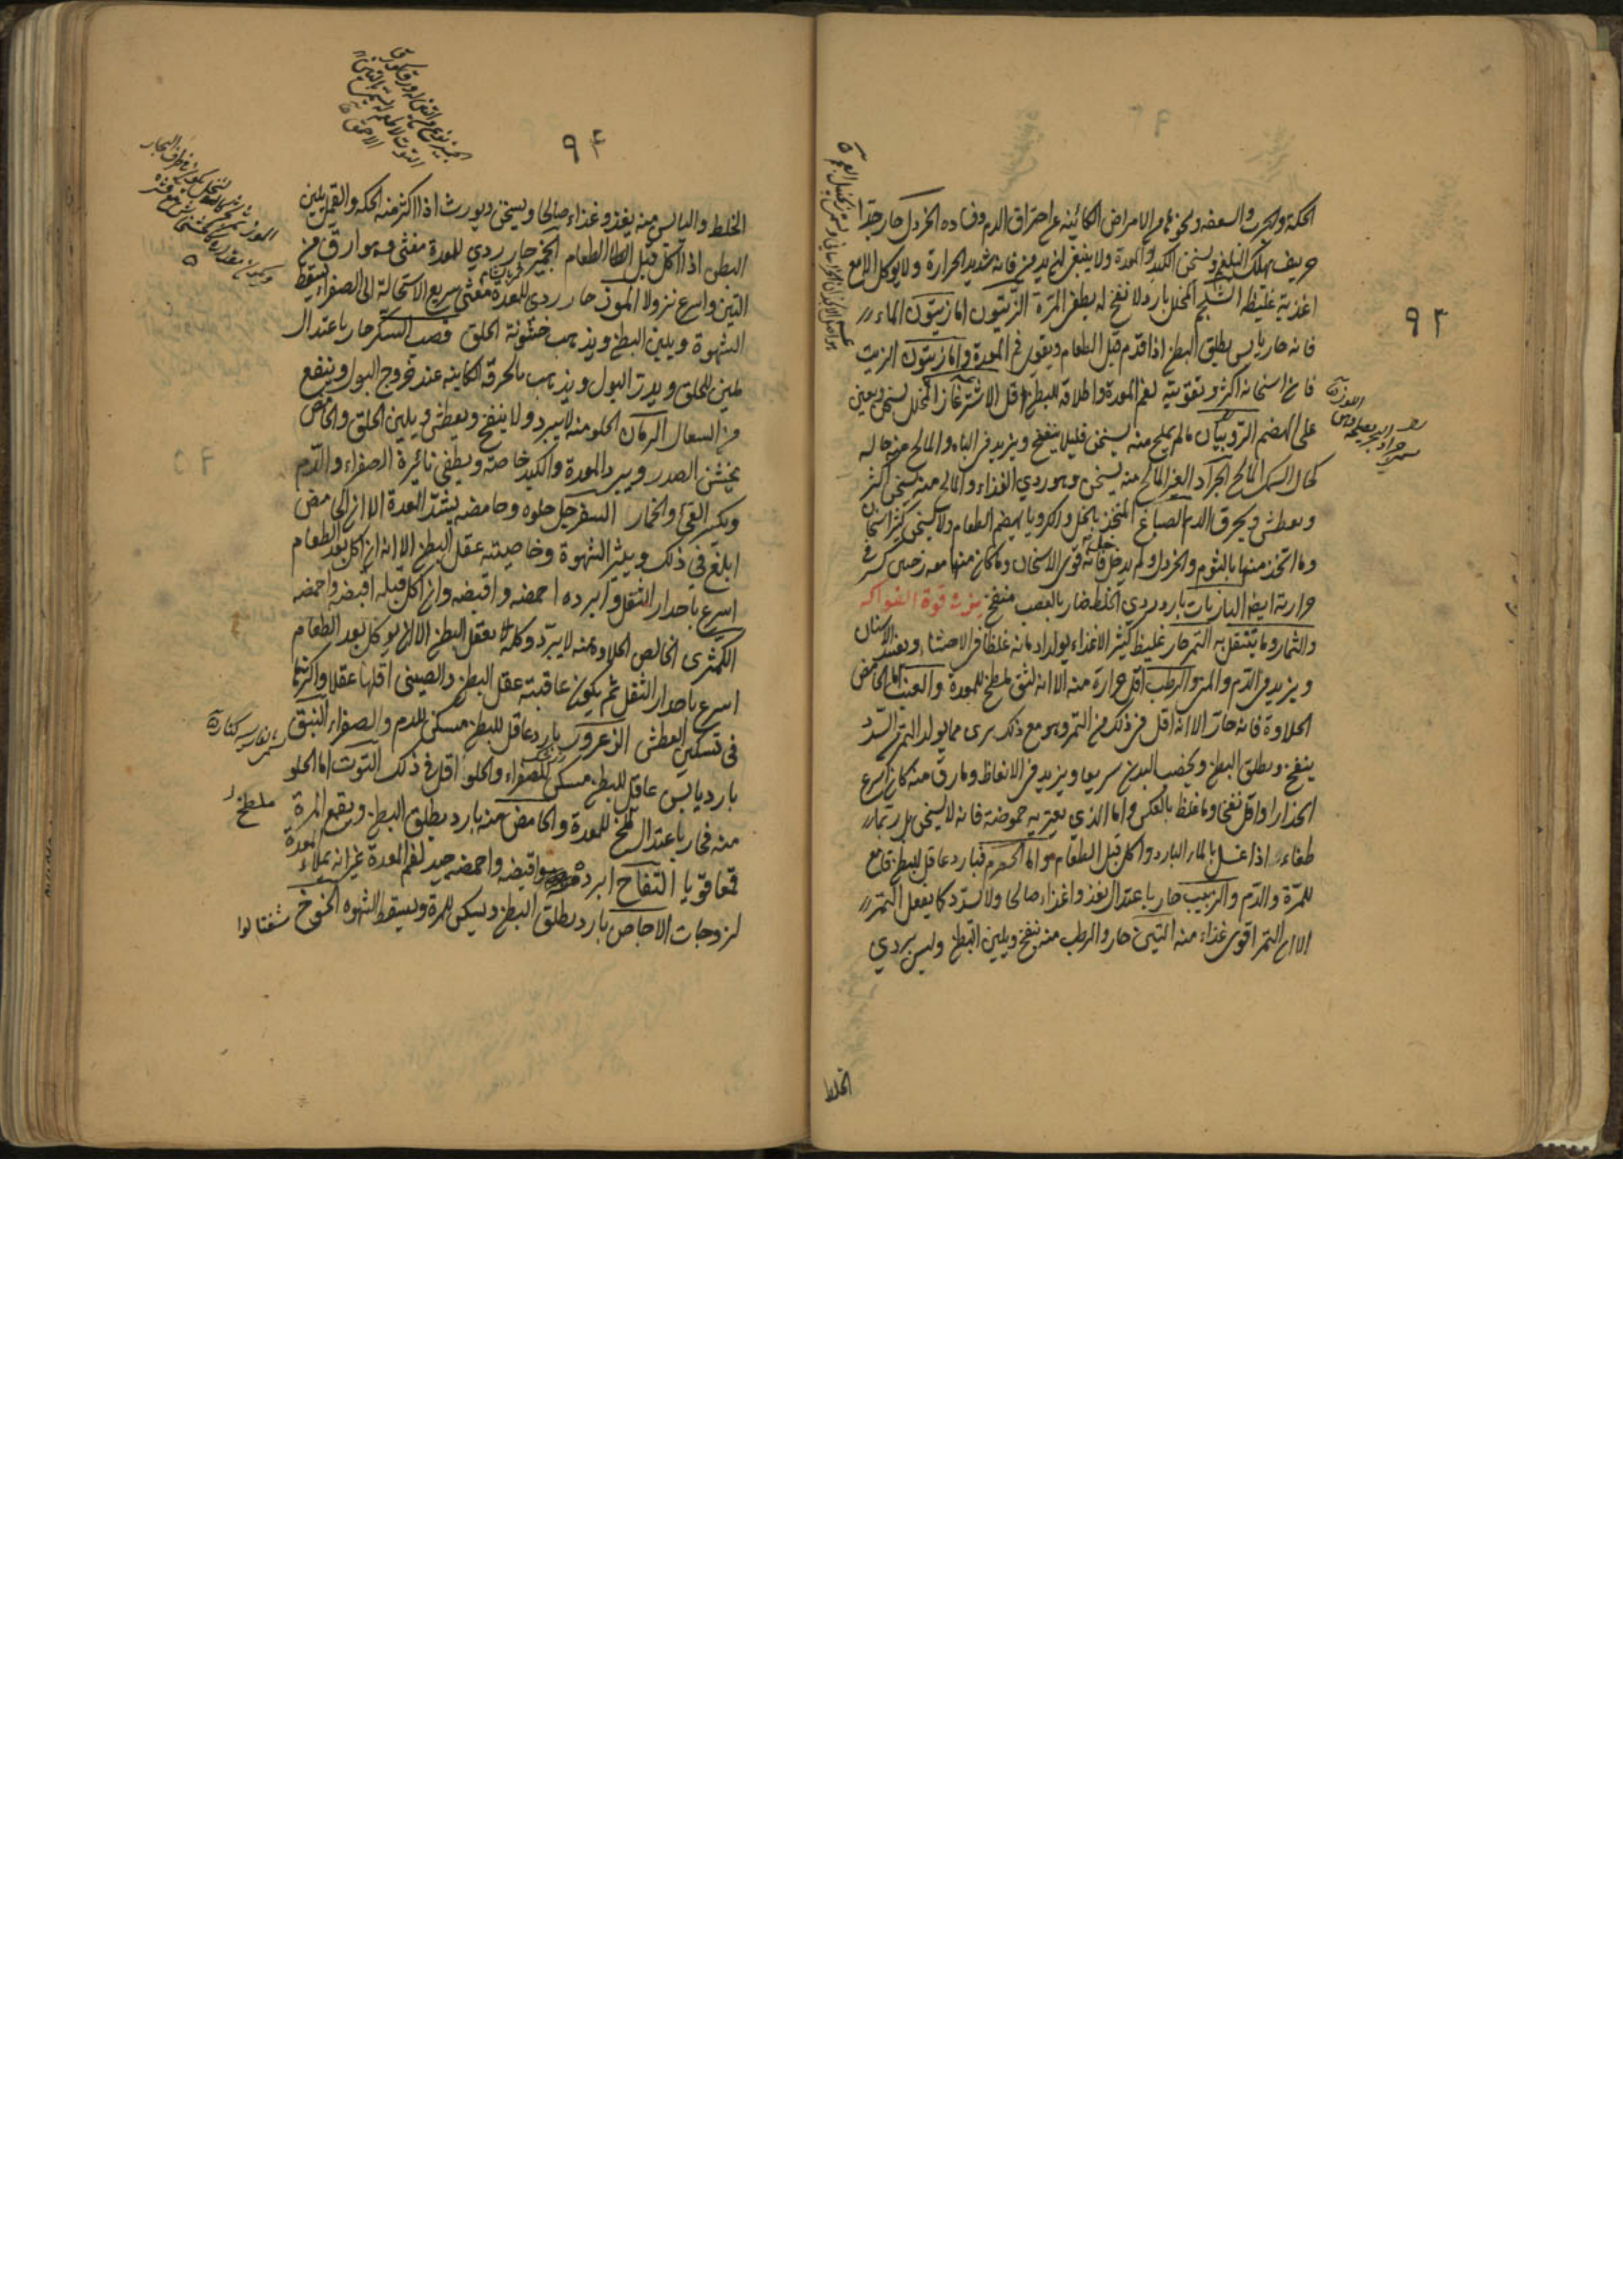 ٩٣
الحكة والجرب والسعفه ونحوها من الامراض الكائنه عن احتراق الدم وفساده الخردل حار جدا
حريف يهلك البلغم ويسخن الكبد والمعدة ولا ينبغي ان يدمن فانه شديد الحرارة ولا يوكل الا مع
اغذية غليظة الشلجم المخلل بارد لا نفخ له يطفي المرة الزيتون اما زيتون الماء
فانه حار يابس يطلق البطن اذا قدم قبل الطعام ويقوي فم المعدة واما زيتون الزيت
فان اسخانه اكثر وتقويته لفم المعدة واطلاقه للبطن اقل الاشترغاز المخلل يسخن ويعين
على الهضم الروبيان ما لم يملح منه يسخن قليلا ينفخ ويزيد في الباه والمالح منه حاله
كحال السمك المالح الجراد الغير المالح منه يسخن وهو ردي الغذاء والمالح منه يسخن اكثر
ويعطش ويحرق الدم الصباغ المتخذ بالخل والكرويا يهضم الطعام ولا يسخن كثير اسخان
وما اتخذ منها بالثوم والخردل ولم يدخل فانه قوي الاسخان وما كان منها معه رخبين كسر في
حرارته ايضا البازيات بارد ردي الخلط ضار بالعصب منفخ في قوة الفواكه
والثمار وما يتنقل به التمر حار غليظ كثير الاغذاء يولد ادمانه غلظا في الاحشاء ويفسد الاسنان
ويزيد في الدم والمني والرطب اقل حرارة منه الا انه لثق ملطخ للمعدة والعنب اما الخالص
الحلاوة فانه حار الا انه اقل في ذلك من التمر وهو مع ذلك برى مما يولد التمر من السدد
ينفخ ويطلق البطن ويخصب البدن سريعا ويزيد في الانعاظ وما رق منه كان اسرع
انحدارا واقل نفخا وما غلظ بالعكس واما الذي يعتريه حموضة فانه لا يسخن بل ربما
طفاء اذا غسل بالماء البارد واكل قبل الطعام واما الحصرم فبارد عاقل للبطن قامع
للمرة والدم والزبيب حار باعتدال يغذوا غذاء صالحا ولا يسدد كما يفعل التمر
الا ان التمر اقوى غذاء منه التين حار والرطب منه ينفخ ويلين البطن وليس بردي
الخلط
٩٤
الخلط واليابس منه يغذو غذاء صالحا ويسخن ويورث اذا اكثر منه الحكه والقمل ويلين
البطن اذا اكل قبل الطعام الجميز حار ردي للمعدة مغثي وهو ارق من
التين واسرع نزولا الموز حار ردي للمعدة مغثي سريع الاستحالة الى الصفراء يسقط
الشهوة ويلين البطن ويذهب خشونة الحلق قصب السكر حار باعتدال
ملين للحلق ويدر البول ويذهب بالحرقة الكاينه عند خروج البول وينفع
من السعال الرمان الحلو منه لا يبرد ولا ينفخ ويعطش ويلين الحلق والحامض
يخشن الصدر ويبرد المعدة والكبد خاصة ويطفي نائرة الصفراء والدم
ويكسر القئ والخمار السفرجل حلوه وحامضه يشد المعدة الا ان الحامض
ابلغ في ذلك ويثير الشهوة وخاصيته عقل البطن الا انه ان اكل بعد الطعام
اسرع باحدار الثفل وابرده احمضه واقبضه وان اكل قبله اقبضه واحمضه
الكمثرى الخالص الحلاوة منه لا يبرد وكله يعقل البطن الا ان يوكل بعد الطعام
اسرع باحدار الثفل ثم يكون عاقبته عقل البطن والصيني اقلها عقلا واكثرها
في تسكين العطش الزعرور بارد عاقل للبطن مسكن للدم والصفراء النبق
بارد يابس عاقل للبطن مسكن للصفراء والحلو اقل في ذلك التوت اما الحلو
منه فحار باعتدال ملطخ للمعدة والحامض منه بارد يطلق البطن ويقمع المرة
قمعا قويا التفاح ابرده واقبضه واحمضه جيد لفم المعدة غير انه يملاء المعدة
لزوجات الاجاص بارد يطلق البطن ويسكن المرة ويسقط الشهوه الخوخ شفتالوا